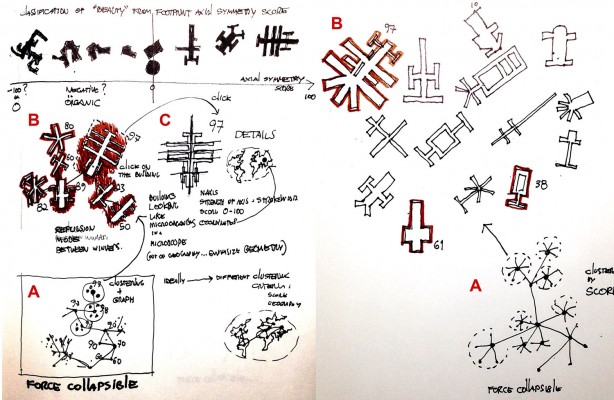 CLASIFICATION OF "BEAUTY" FROM FOOTPRINT AXIAL SYMMETRY SCORE
-100
?
0
NEGATIVE ?
ORGANIC
0
AXIAL SYMMETRY
SCORE
100
CLICK
B
80
97
C
97
DETAILS
CLICK
ON
THE BUILDING
60
82
89
93
50
REPULSION
BETWEEN WINNERS.
BUILDINGS
LOOKING
LIKE
MICROORGANISMS
IN A
MICROSCOPE
STRENGTH OF AXIS
SCORE 0-100
COORDINATES
(OUT OF GEOGRAPHY... EMPHASIZE GEOMETRY)
A
CLUSTERING
+
GRAPH
98
90
70
60
IDEALLY
DIFFERENT CLUSTERING
CRITERIA :
SCORE
GEOGRAPHY
FORCE COLLAPSIBLE
B
97
10
38
61
A
CLUSTERS
BY
SCORE
FORCE COLLAPSIBLE